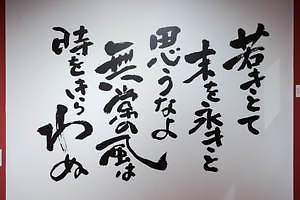 若きとて
末を永きと
思うなよ
無常の風は
時をきら
わぬ